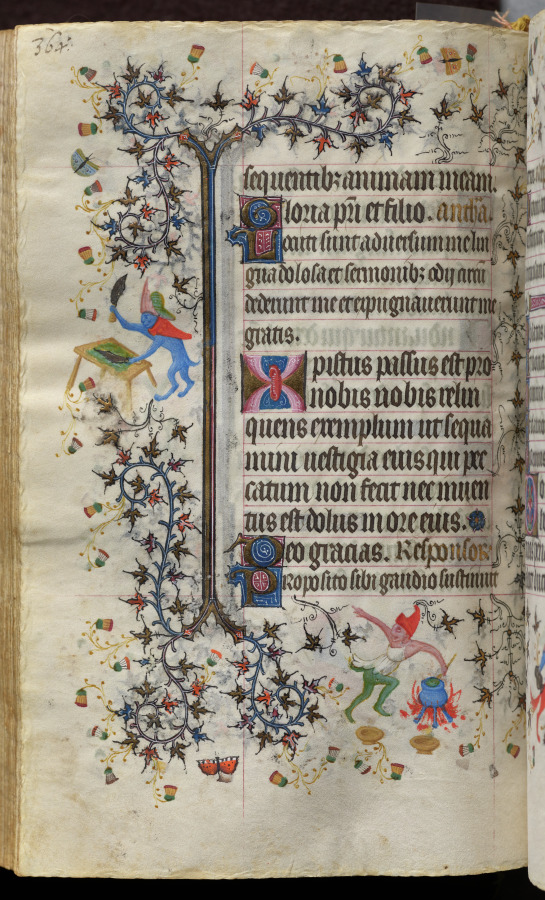 364
sequentibꝫ animam meam.
Gloria pr̄i et filio. antħa.
Locuti sunt aduersum me lin
gua dolosa et sermonibꝫ odij circū
dederunt me et expugnauerunt me
gratis.
Xpistus passus est pro
nobis uobis relin
quens exemplum ut sequa
mini uestigia eius qui pec
catum non fecit nec inuen
tus est dolus in ore eius.
Deo gracias. Responsor
Proposito sibi gaudio sustinuit